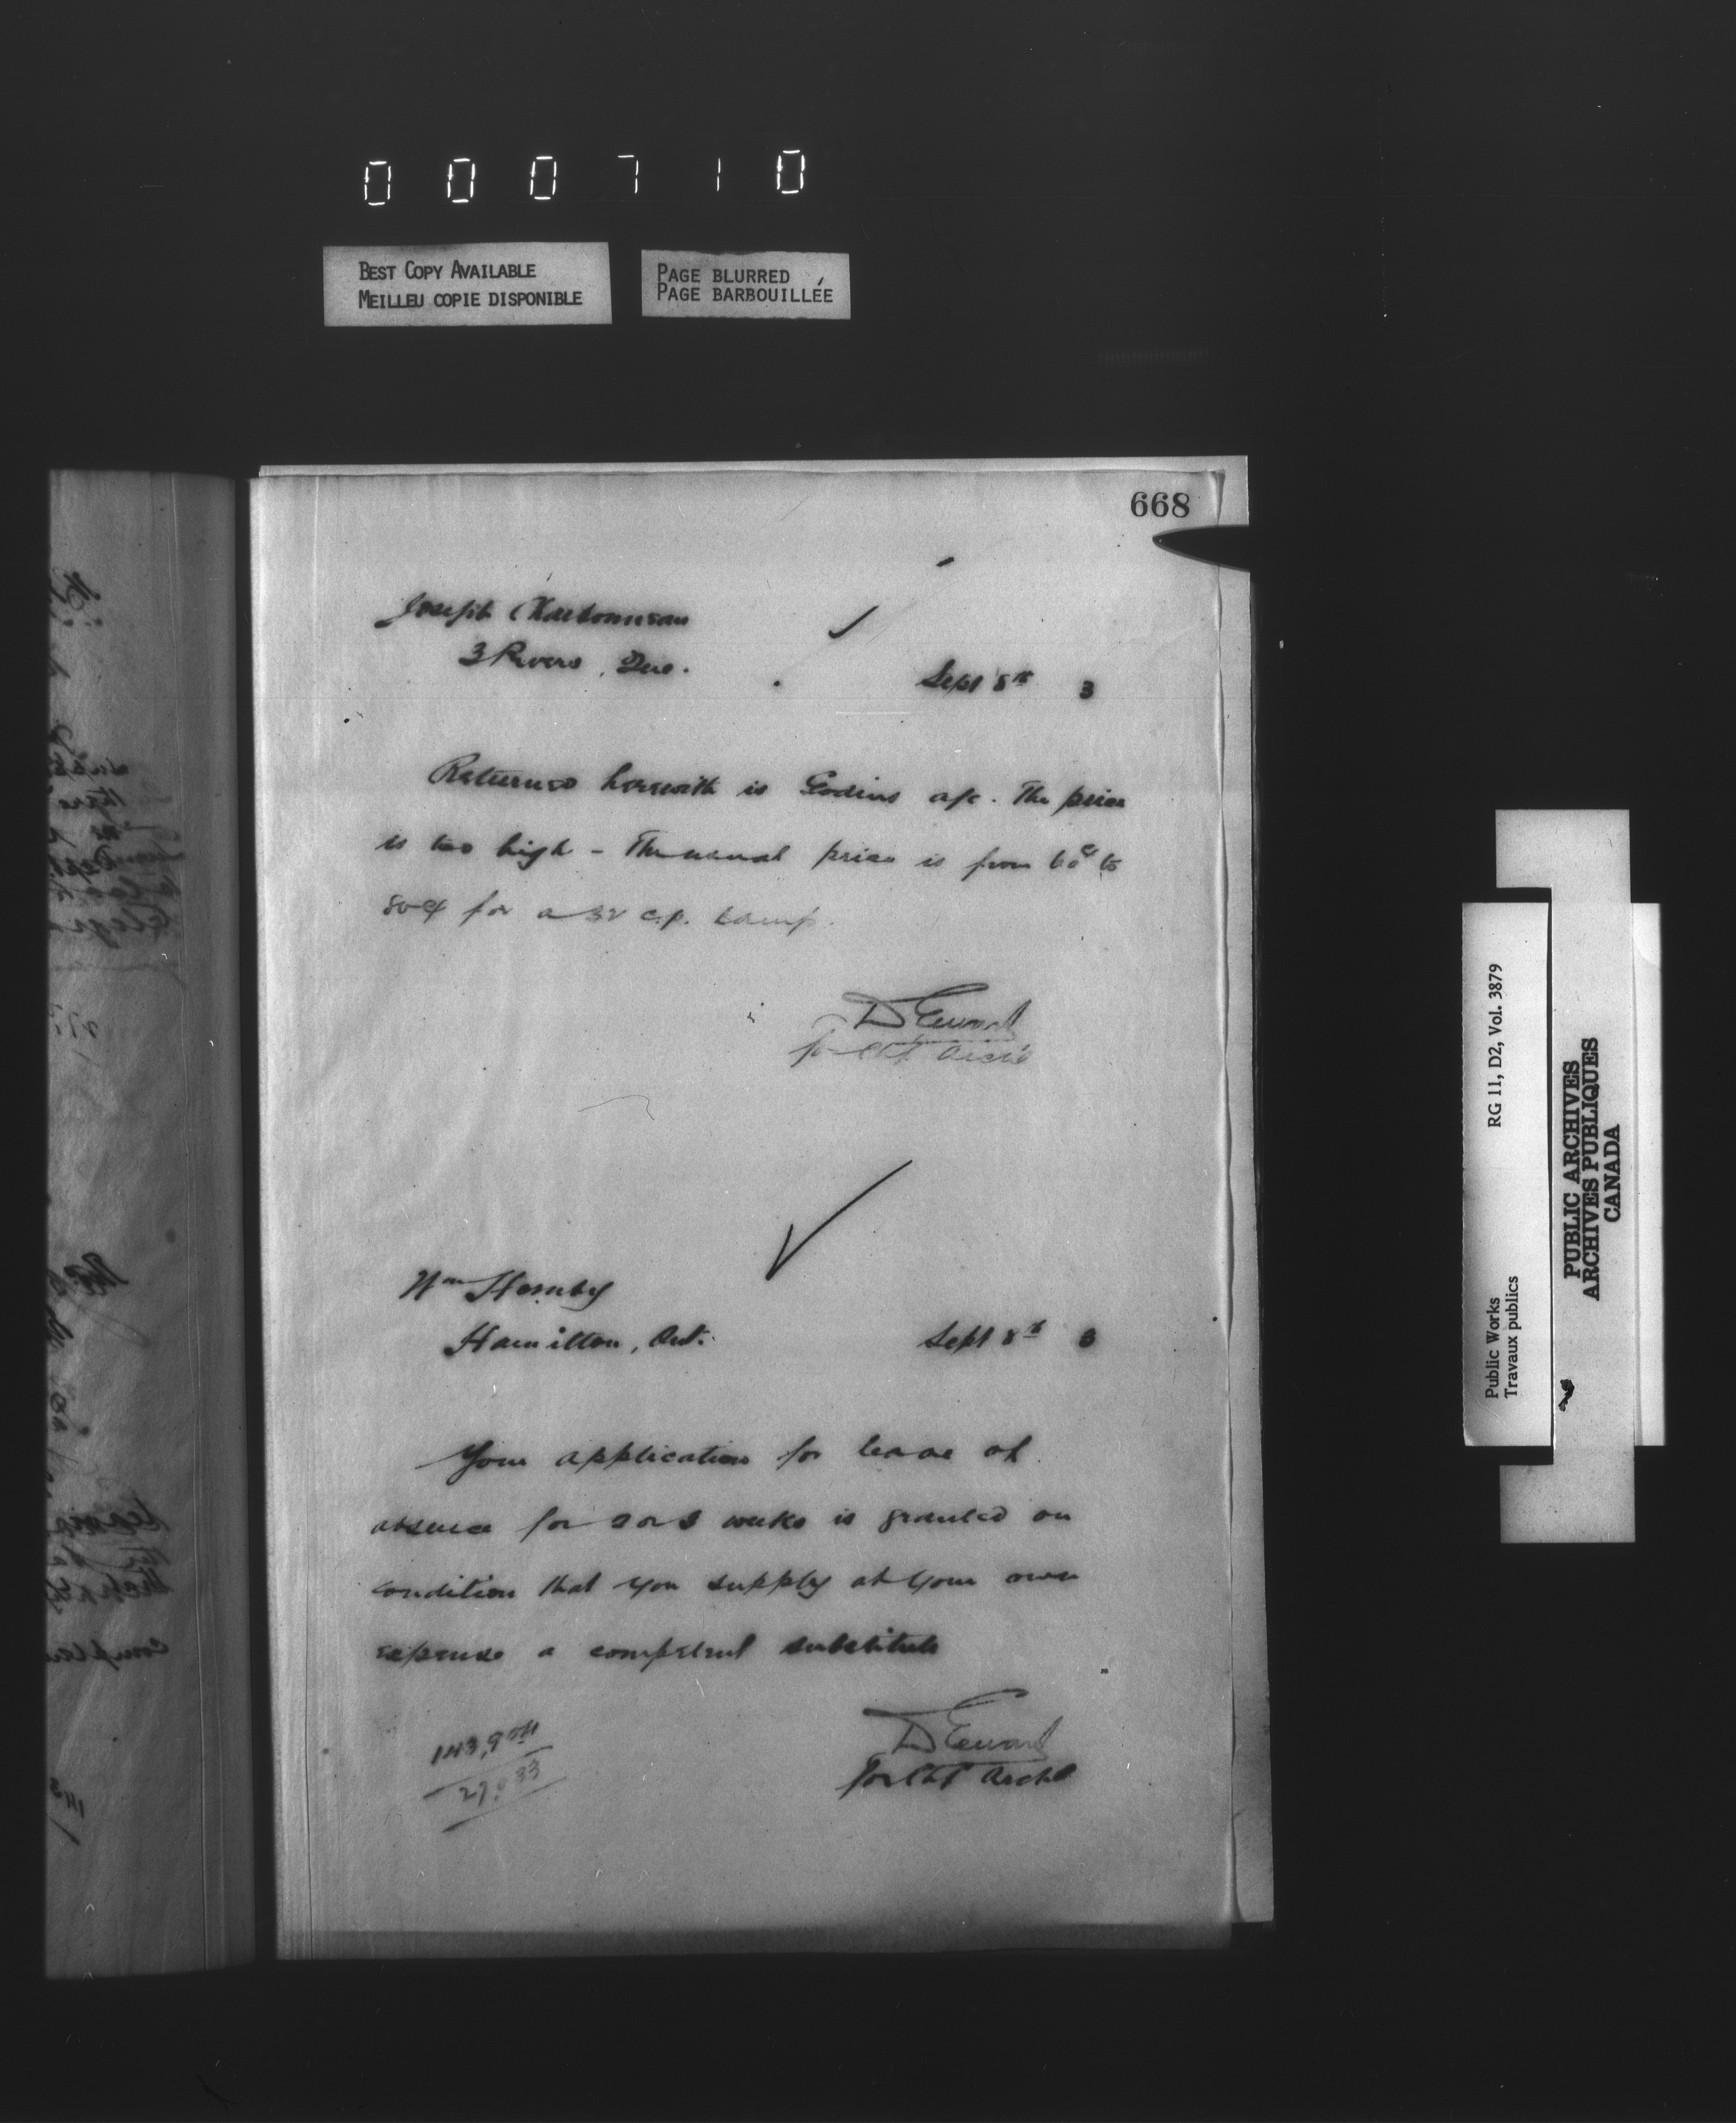 000710
BEST COPY AVAILABLE
MEILLEU COPIE DISPONIBLE
PAGE BLURRED
PAGE BARBOUILLÉE
668
Joseph Charbonneau
3 Rivers, Que.
Sept 8th 3
Returned herewith is Godins a/c. The price
is too high - The usual price is from 60¢ to
80¢ for a 32 c.p. Lamp.
D Ewart
for Chf Archt
Wm Hornby
Hamilton, Ont.
Sept 8th 3
Your application for leave of
absence for 2 or 3 weeks is granted on
condition that you supply at your own
expense a competent substitute
D Ewart
for Chf Archt
RG 11, D2, Vol. 3879
Public Works
Travaux publics
PUBLIC ARCHIVES
ARCHIVES PUBLIQUES
CANADA